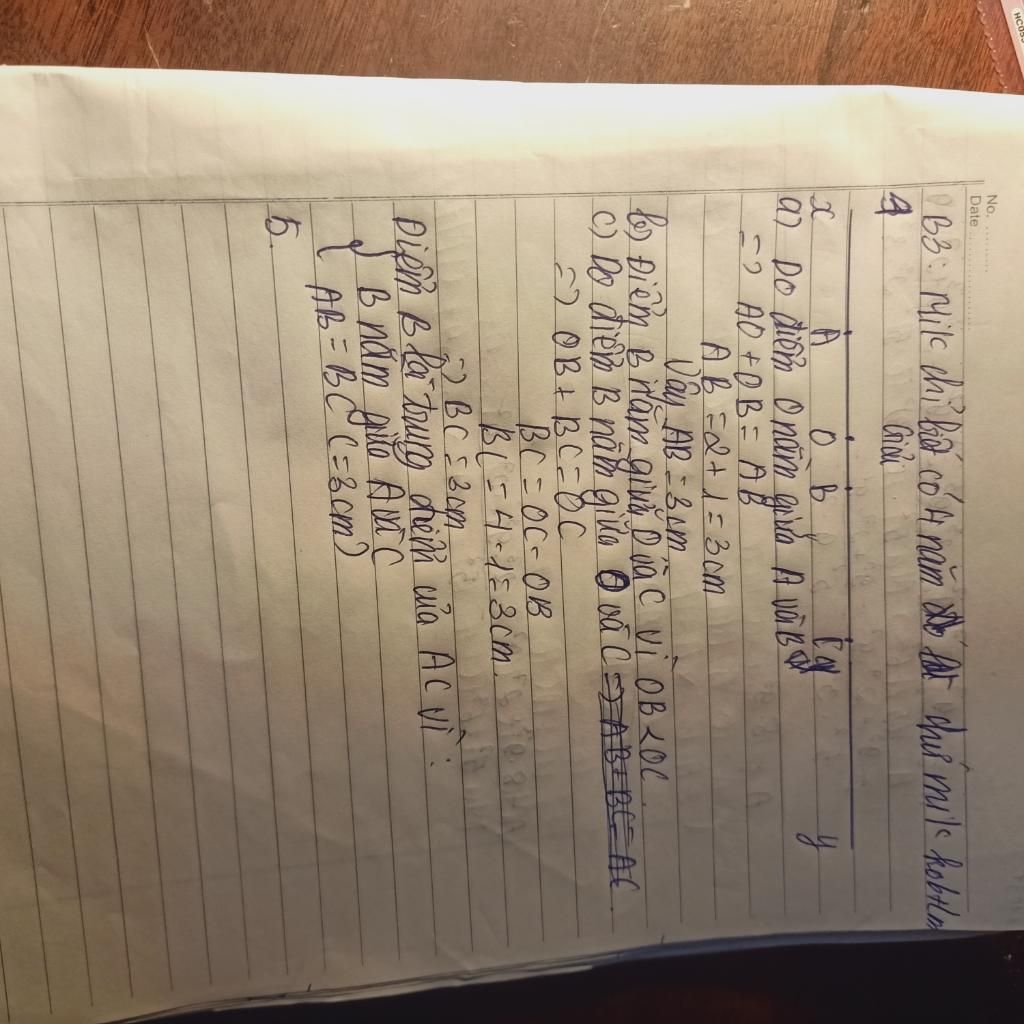 No.
Date
B3: Mik chỉ biết có 4 năm thui mik kobtlm
4
Giải
x A O B C y
a) Do điểm O nằm giữa A và B
=> AO + OB = AB
AB = 2 + 1 = 3cm
Vậy AB = 3cm
b) Điểm B nằm giữa O và C vì OB < OC
c) Do điểm B nằm giữa O và C => AB + BC = AC
=> OB + BC = OC
BC = OC - OB
BC = 4 - 1 = 3cm.
=> BC = 3cm
Điểm B là trung điểm của AC vì:
B nằm giữa A và C
AB = BC (= 3cm)
5.
HC05